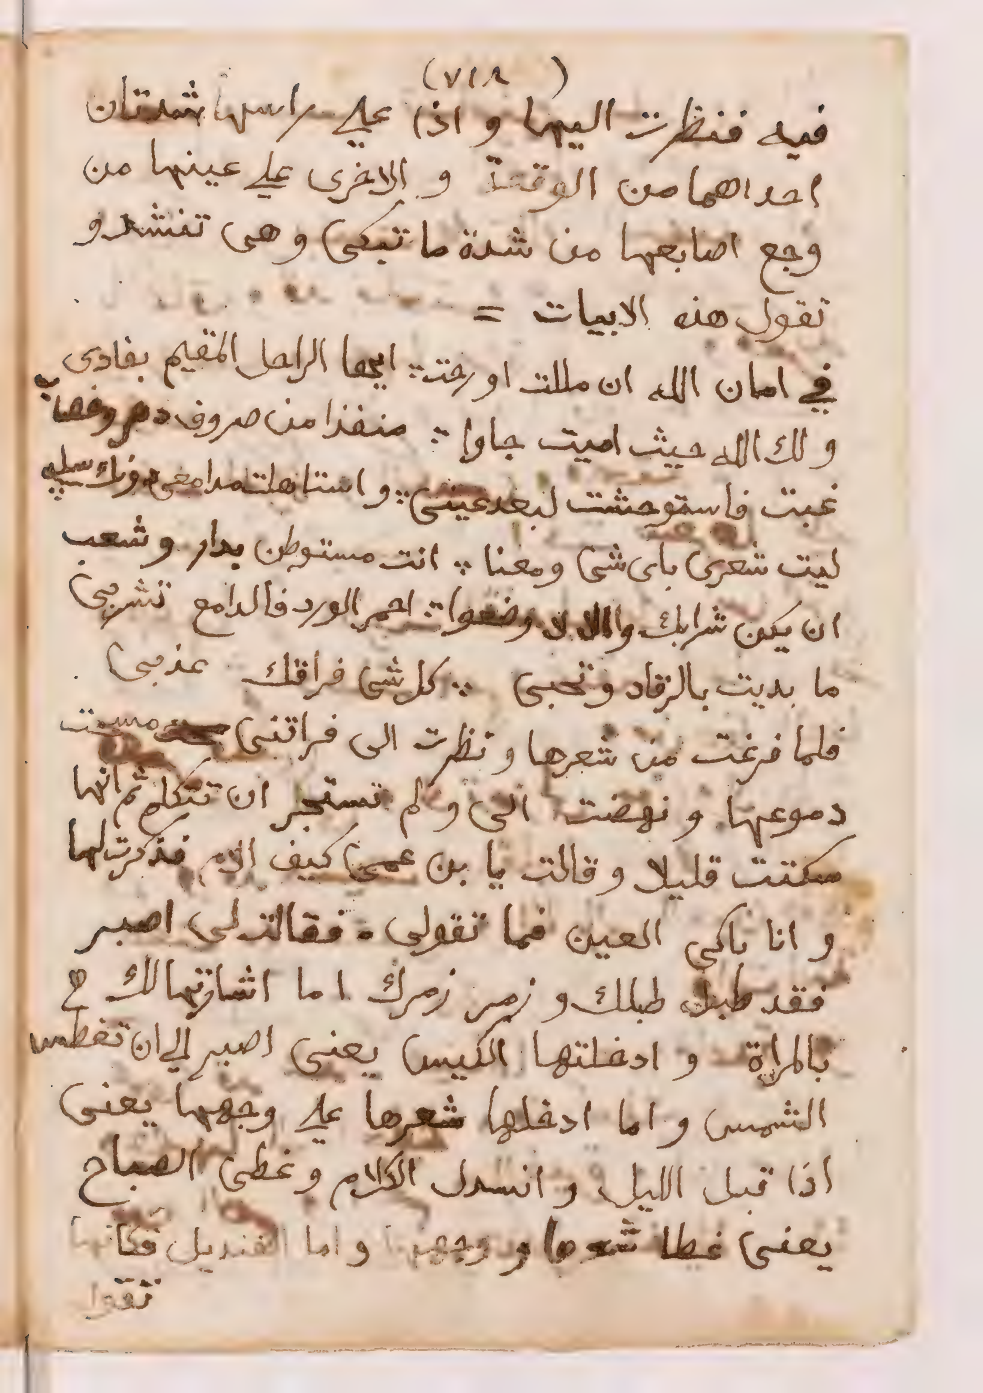 (٧١٨)
فيه فنظرت اليها و اذا علي راسها شدتان
احداهما من الوقعة و الاخرى علي عينها من
وجع اصابعها من شدة ما تبكي وهى تنشد و
تقول هذه الابيات =
في امان الله ان مللت او رحت ؞ ايها الراحل المقيم بفادى
و لك الله حيث اميت جاوا ؞ منفذا من صروف دهر
غبت فاستوحشت لبعد عيني ؞ و استاهلت مدامعي
ليت شعرى باى شى ومعنا ؞ انت مستوطن بدار وشعب
ان يكن شرابك احمر الورد فالدامع
ما بديت بالرقاد ؞ كل شي فراقك عذبي
فلما فرغت من شعرها و نظرت الى فراتنى مسحت
دموعها و نهضت الى و لم تستجر ان تتكلم ثم انها
سكتت قليلا و قالت يا بن عمي كيف الامر فذكرت لها
و انا باكي العين فما تقولى - فقالت لى اصبر
فقد طبل طبلك و زمر زمرك اما اشارتها لك
بالمراة و ادخلتها الكيس يعنى اصبر الي ان تغطس
الشمس و اما ادخلها شعرها علي وجهها يعنى
اذا قبل الليل و انسدل الكلام و غطى الصباح
يعنى غطا و وجهها و اما القنديل فكانها
تقول